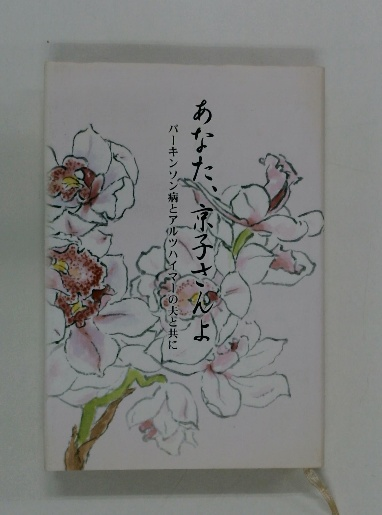 あなた、京子さんよ
パーキンソン病とアルツハイマーの夫と共に